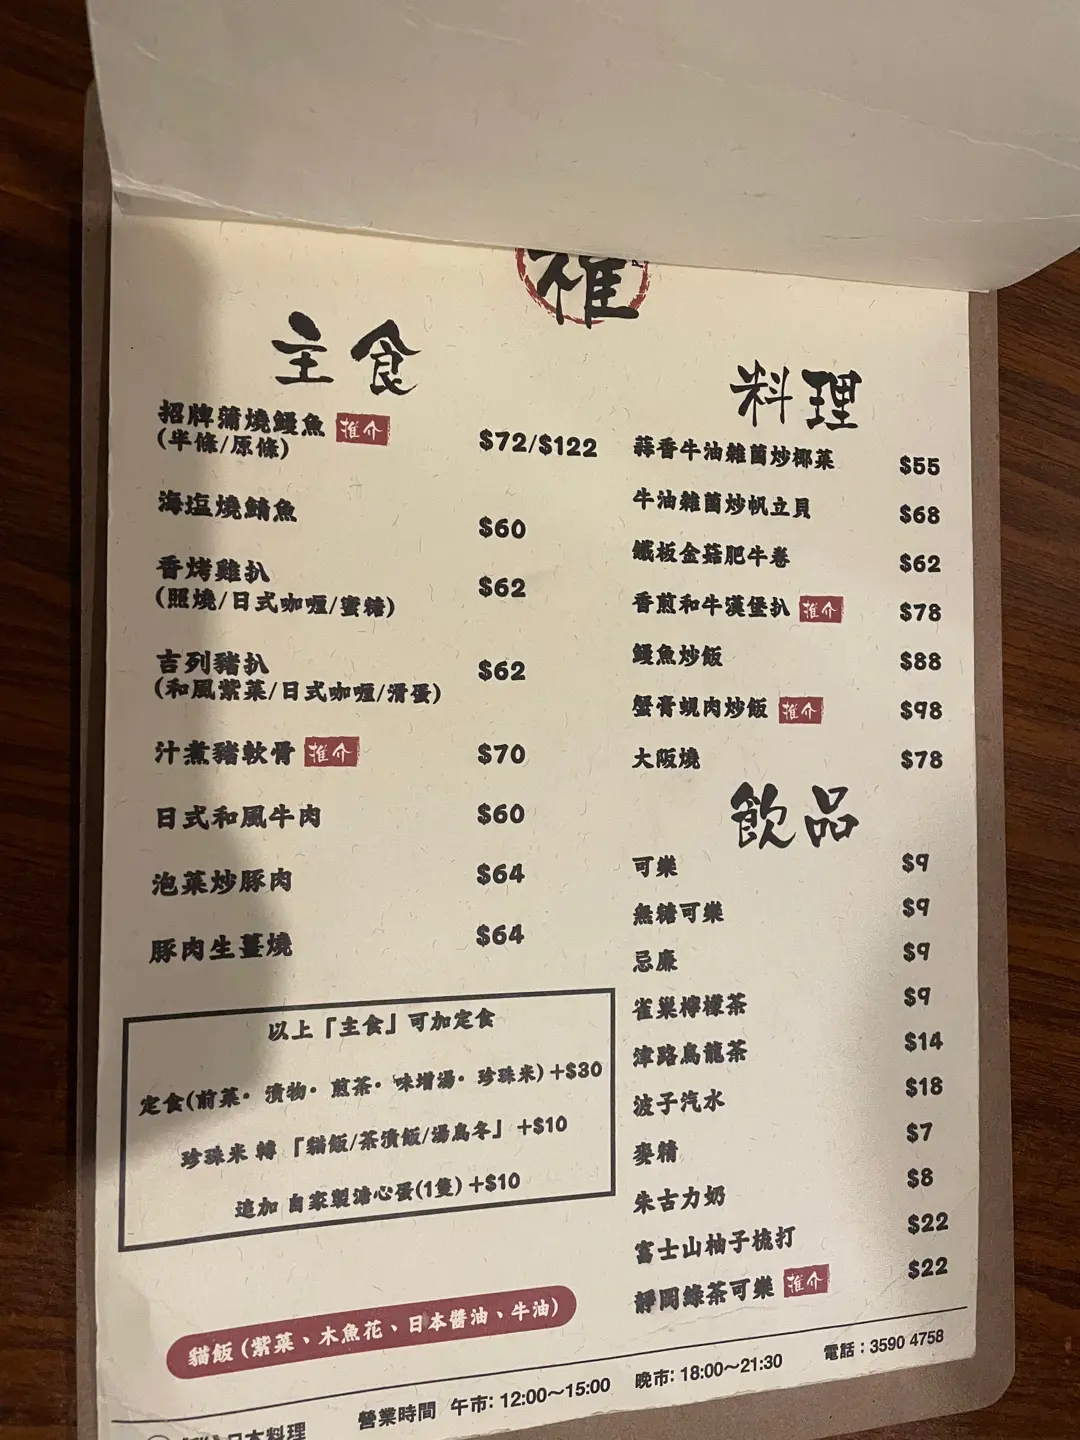 雅
主食
招牌蒲燒鰻魚 推介
(半條/原條) $72/$122
海塩燒鯖魚 $60
香烤雞扒 $62
(照燒/日式咖喱/蜜糖)
吉列豬扒 $62
(和風紫菜/日式咖喱/滑蛋)
汁煮豬軟骨 推介 $70
日式和風牛肉 $60
泡菜炒豚肉 $64
豚肉生薑燒 $64
以上「主食」可加定食
定食(前菜・漬物・煎茶・味增湯・珍珠米)+$30
珍珠米 轉 「貓飯/茶漬飯/湯烏冬」 +$10
追加 自家製溏心蛋(1隻)+$10
貓飯 (紫菜、木魚花、日本醬油、牛油)
料理
蒜香牛油雜菌炒椰菜 $55
牛油雜菌炒帆立貝 $68
鐵板金菇肥牛卷 $62
香煎和牛漢堡扒 推介 $78
鰻魚炒飯 $88
蟹膏蜆肉炒飯 推介 $98
大阪燒 $78
飲品
可樂 $9
無糖可樂 $9
忌廉 $9
雀巢檸檬茶 $9
津路烏龍茶 $14
波子汽水 $18
麥精 $7
朱古力奶 $8
富士山柚子梳打 $22
靜岡綠茶可樂 推介 $22
日本料理
營業時間 午市: 12:00～15:00 晚市: 18:00～21:30 電話：3590 4758